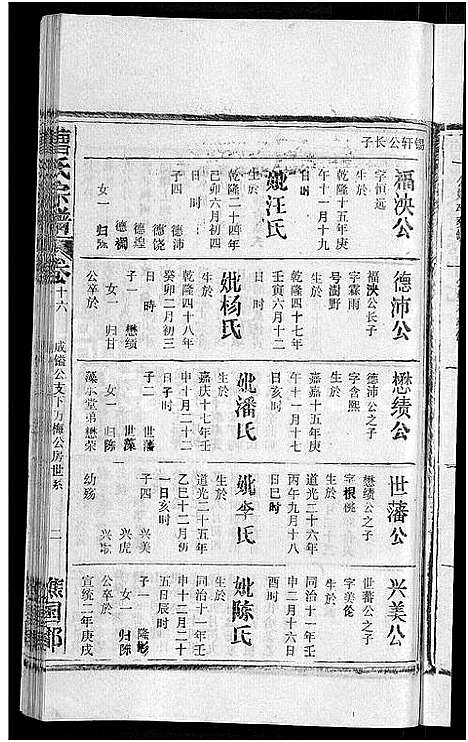 锡轩公长子
福泱公
字恒远
生於
乾隆十五年庚
午十一月十九
日 时
妣汪氏
生於
乾隆二十四年
己卯六月初四
日 时
子四 德沛
德饶
德煌
德
女一 归陈
德沛公
福泱公长子
字霖雨
号润野
生於
乾隆四十七年
壬寅六月十二
日 时
妣杨氏
生於
乾隆四十八年
癸卯二月初三
日 時
子一 懋绩
女一 归甘
公卒於
懋绩公
德沛公之子
字含熙
生於
嘉嘉十五年庚
午十一月十七
日亥时
妣潘氏
生於
嘉庆十七年壬
申十月二十二
日子时
子二 世藩
世藻
女一 归陈
藻东堂弟懋荣
世藩公
懋绩公之子
字根桃
生於
道光二十六年
丙午九月十八
日巳时
妣李氏
生於
道光二十五年
乙巳十二月初
一日亥时
子四 兴美
兴虎
兴
幼殇
兴美公
世蕃公之子
字美伦
生於
同治十一年壬
申二月十六日
酉时
妣陈氏
生於
同治十一年壬
申十二月二十
五日辰时
子一 隆彬
女一 归陈
公卒於
宣统二年庚戌
曹氏宗谱
卷十六
咸镒公支下万梅公房世系
二
谯国郡